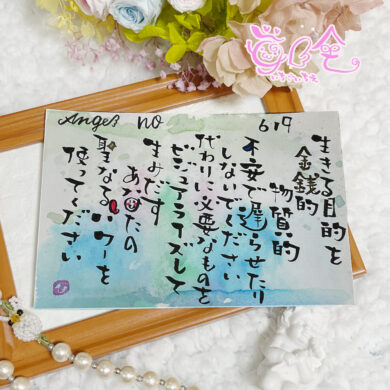 Angel no 619
生きる目的を
金銭的
物質的
不安で遅らせたり
しないでください
代わりに必要なものを
ビジュアライズして
生みだす
あなたの
聖なるパワーを
使ってください